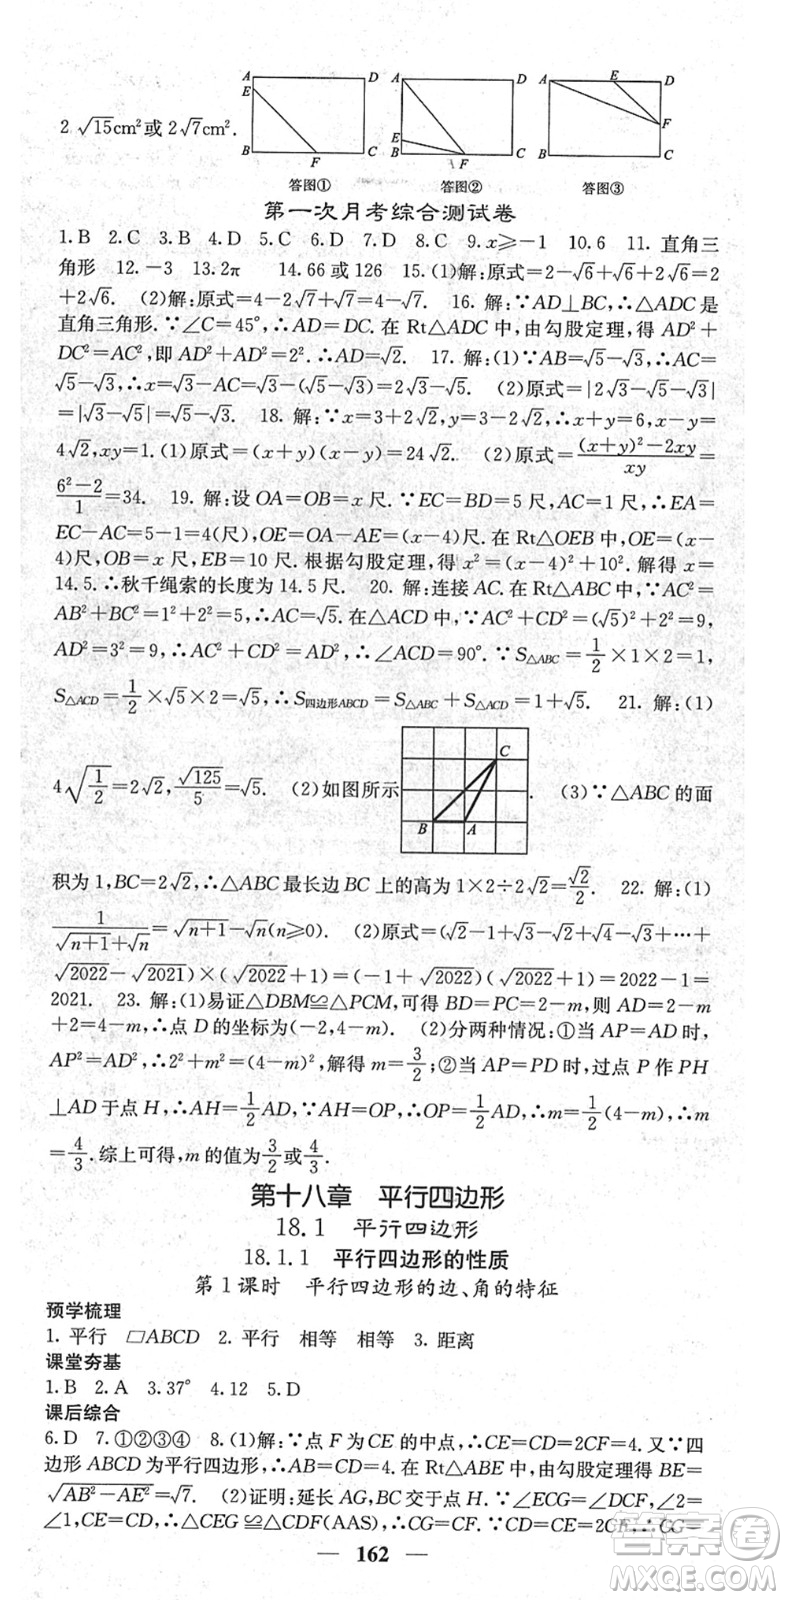 A D A D A E D
E
F
E
B F C B F C B C
2 √15cm²或2√7cm².
答图① 答图② 答图③
第一次月考综合测试卷
1.B 2.C 3.B 4.D 5.C 6.D 7.D 8.C 9.x⩾-1 10.6 11.直角三
角形 12.-3 13.2π 14.66或126 15.(1)解:原式=2-√6+√6+2√6=2
+2√6. (2)解:原式=4-2√7+√7=4-√7. 16.解:∵AD⊥BC,∴△ADC是
直角三角形.∵∠C=45°,∴AD=DC.在Rt△ADC中,由勾股定理,得AD²+
DC²=AC²,即AD²+AD²=2².∴AD=√2. 17.解:(1)∵AB=√5-√3,∴AC=
√5-√3,∴x=√3-AC=√3-(√5-√3)=2√3-√5. (2)原式=|2√3-√5-√3|
=|√3-√5|=√5-√3. 18.解:∵x=3+2√2,y=3-2√2,∴x+y=6,x-y=
4√2,xy=1.(1)原式=(x+y)(x-y)=24√2. (2)原式=((x+y)²-2xy)/xy=
(6²-2)/1=34. 19.解:设OA=OB=x尺.∵EC=BD=5尺,AC=1尺,∴EA=
EC-AC=5-1=4(尺),OE=OA-AE=(x-4)尺.在Rt△OEB中,OE=(x-
4)尺,OB=x尺,EB=10尺.根据勾股定理,得x²=(x-4)²+10².解得x=
14.5.∴秋千绳索的长度为14.5尺. 20.解:连接AC.在Rt△ABC中,∵AC²=
AB²+BC²=1²+2²=5,∴AC=√5.在△ACD中,∵AC²+CD²=(√5)²+2²=9,
AD²=3²=9,∴AC²+CD²=AD²,∴∠ACD=90°.∵S△ABC=1/2×1×2=1,
S△ACD=1/2×√5×2=√5,∴S四边形ABCD=S△ABC+S△ACD=1+√5. 21.解:(1)
4√(1/2)=2√2,√125/5=√5. (2)如图所示 C B A . (3)∵△ABC的面
积为1,BC=2√2,∴△ABC最长边BC上的高为1×2÷2√2=√2/2. 22.解:(1)
1/(√(n+1)+√n)=√(n+1)-√n(n⩾0). (2)原式=(√2-1+√3-√2+√4-√3+⋯+
√2022-√2021)×(√2022+1)=(-1+√2022)(√2022+1)=2022-1=
2021. 23.解:(1)易证△DBM≌△PCM,可得BD=PC=2-m,则AD=2-m
+2=4-m,∴点D的坐标为(-2,4-m). (2)分两种情况:①当AP=AD时,
AP²=AD²,∴2²+m²=(4-m)²,解得m=3/2;②当AP=PD时,过点P作PH
⊥AD于点H,∴AH=1/2AD,∵AH=OP,∴OP=1/2AD,∴m=1/2(4-m),∴m
=4/3.综上可得,m的值为3/2或4/3.
第十八章 平行四边形
18.1 平行四边形
18.1.1 平行四边形的性质
第1课时 平行四边形的边、角的特征
预学梳理
1.平行 ▱ABCD 2.平行 相等 相等 3.距离
课堂夯基
1.B 2.A 3.37° 4.12 5.D
课后综合
6.D 7.①②③④ 8.(1)解:∵点F为CE的中点,∴CE=CD=2CF=4.又∵四
边形ABCD为平行四边形,∴AB=CD=4.在Rt△ABE中,由勾股定理得BE=
√(AB²-AE²)=√7. (2)证明:延长AG,BC交于点H.∵∠ECG=∠DCF,∠2=
∠1,CE=CD,∴△CEG≌△CDF(AAS),∴CG=CF.∵CD=CE=2CF,∴CG=
— 162 —
答案圈
MXQE.COM